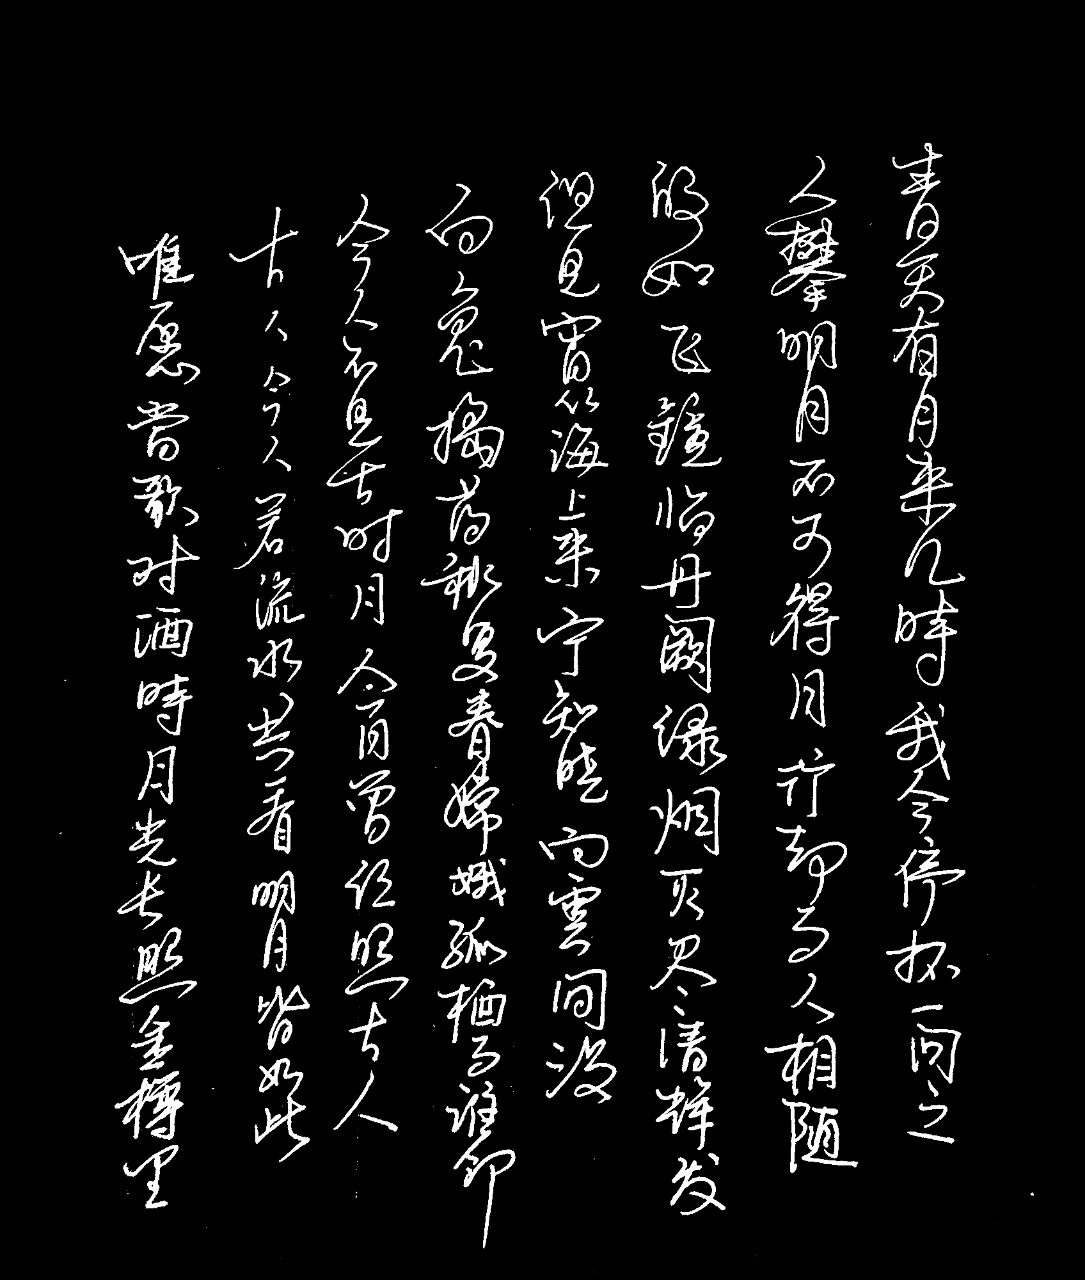 青天有月来几時我今停杯一问之
人攀明月不可得月行却与人相随
皎如飞镜临丹阙绿烟灭尽清辉发
但见宵从海上来宁知晓向雲间没
白兔捣药秋复春嫦娥孤栖与谁邻
今人不见古时月今月曾经照古人
古人今人若流水共看明月皆如此
唯愿当歌对酒時月光长照金樽里